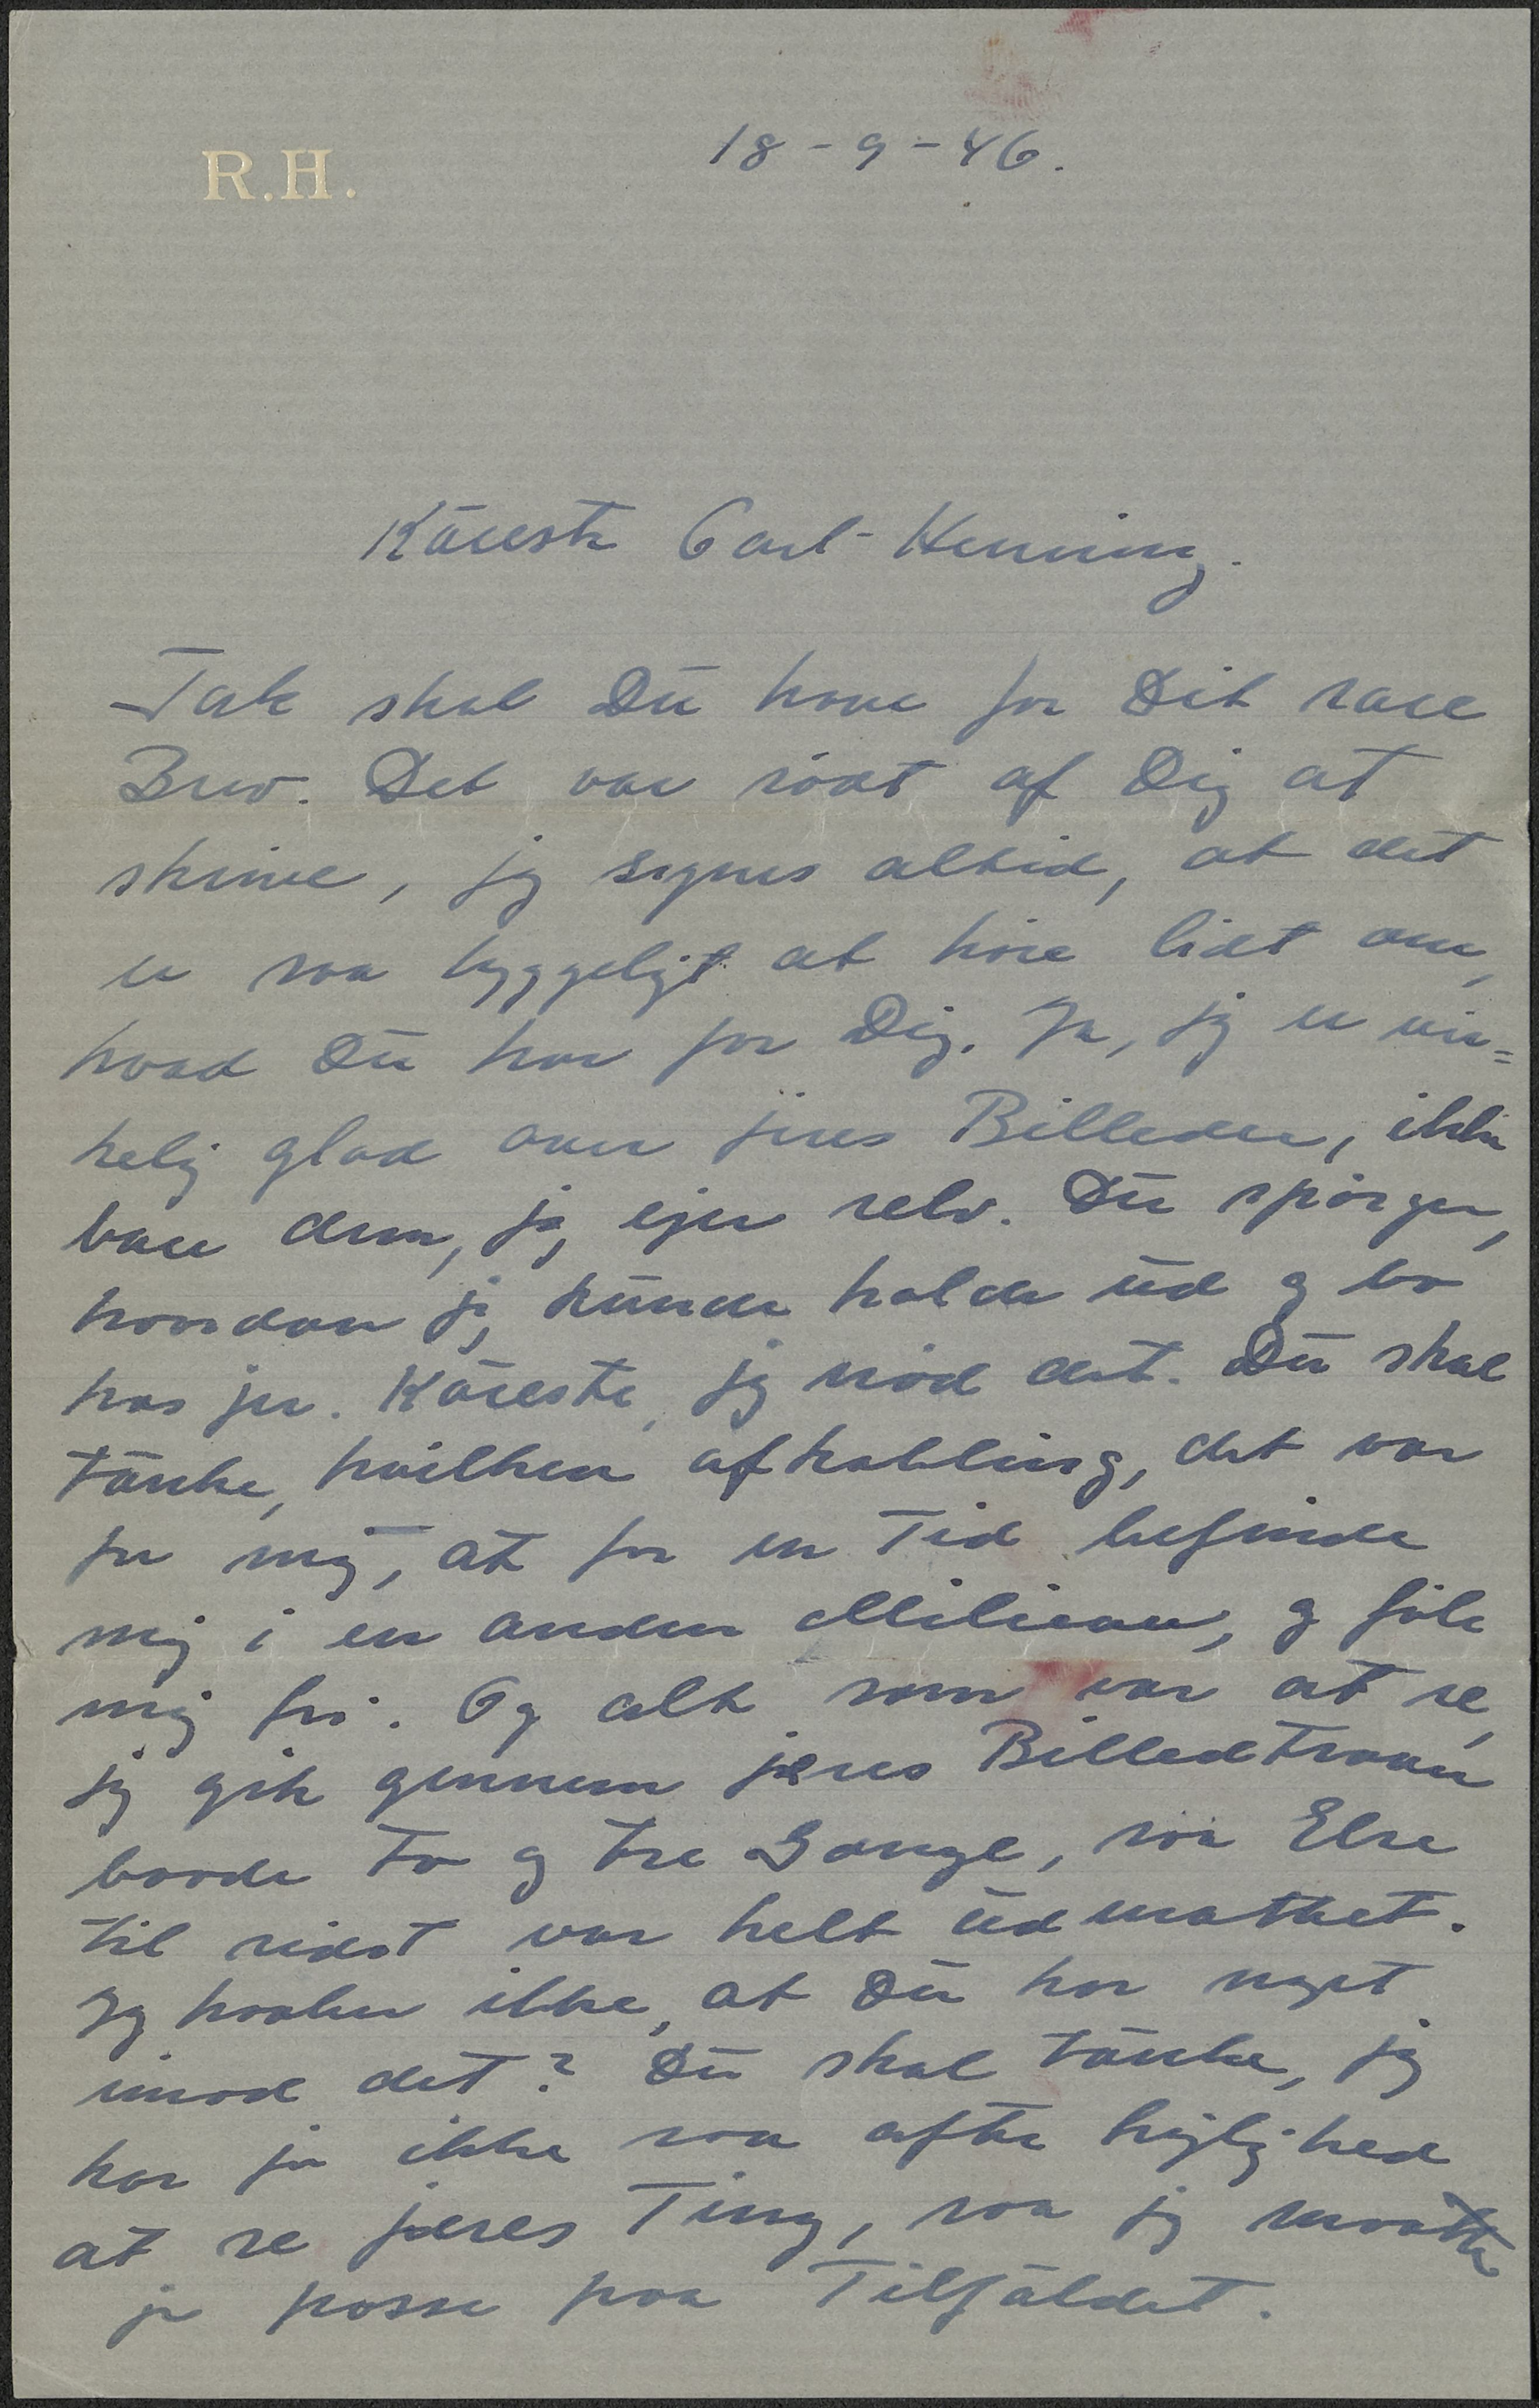 R.H.
18-9-46.
Käreste Carl-Henning.
Tak skal Du have for Dit rare
Brev. Det var södt af Dig at
skrive, jeg synes altid, at det
er saa hyggeligt at höre lidt om,
hvad Du har for Dig. Ja, jeg er vir=
kelig glad over jeres Billeder, ikke
bare dem, jeg ejer selv. Du spörger,
hvordan jeg kunde holde ud og bo
hos jer. Käreste, jeg nöd det. Du skal
tänke, hvilken afkobling, det var
for mig, at for en Tid befinde
mig i en anden Milieau, og föle
mig fri. Og alt som var at se,
jeg gik gennem jeres Billedtraver
baade to og tre Gange, saa Else
til sidst var helt udmattet.
Jeg haaber ikke, at Du har noget
imod det? Du skal tänke, jeg
har jo ikke saa ofte lejlighed
at se jeres Ting, saa jeg maatte
jo passe paa Tilfäldet.